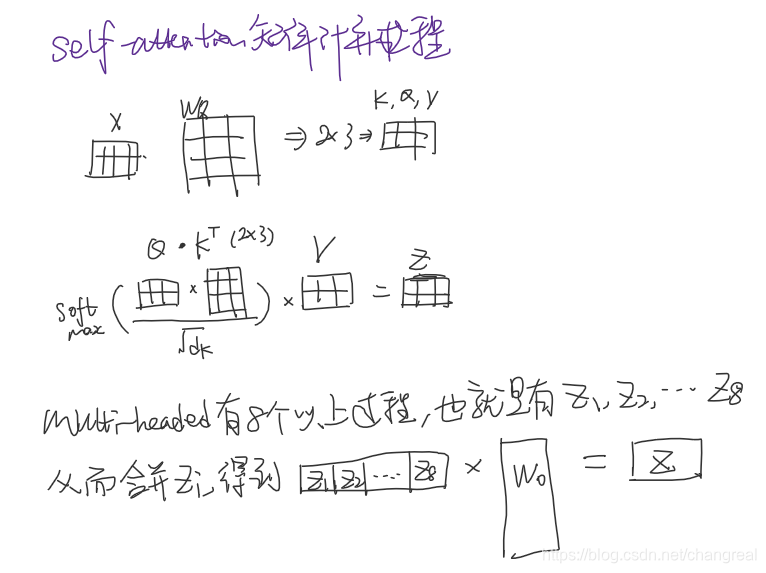 self-attention 矩阵计算过程
K, Q, V
X WQ ⇒ 2×3 ⇒
Q · K^T (2×3) V Z
softmax ( × ) × =
√dk
multi-headed有8个以上过程,也就是有 Z1, Z2, ··· Z8
从而合并Zi, 得到 Z1 Z2 ··· Z8 × Wo = Z
https://blog.csdn.net/changreal